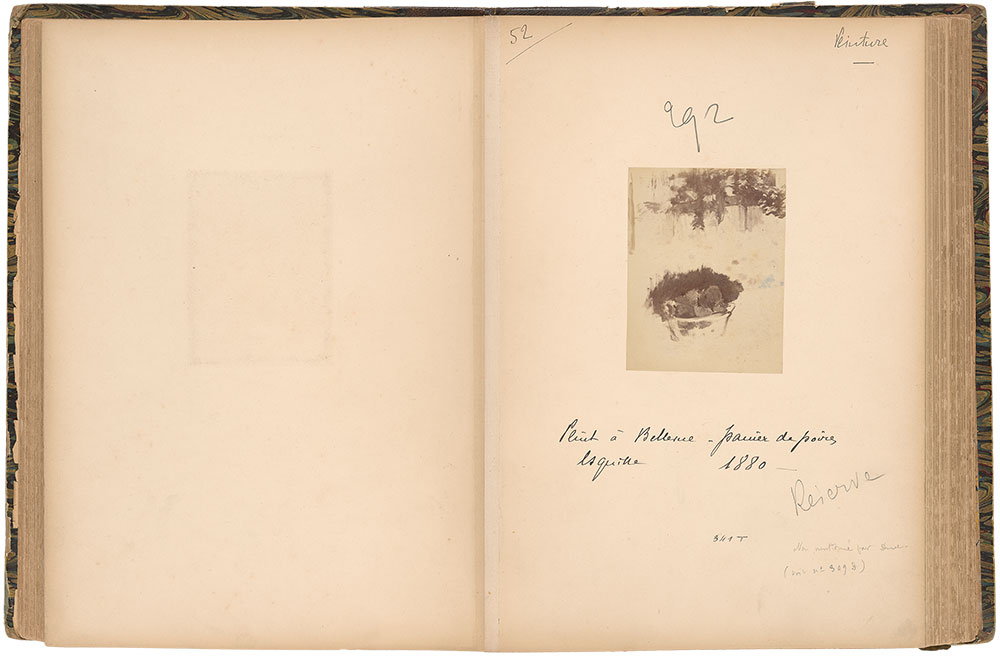 52
Peinture
292
Peint à Bellevue - panier de poires
Esquisse 1880 -
Réserve
341 T
Non par
(voir n° 309 )